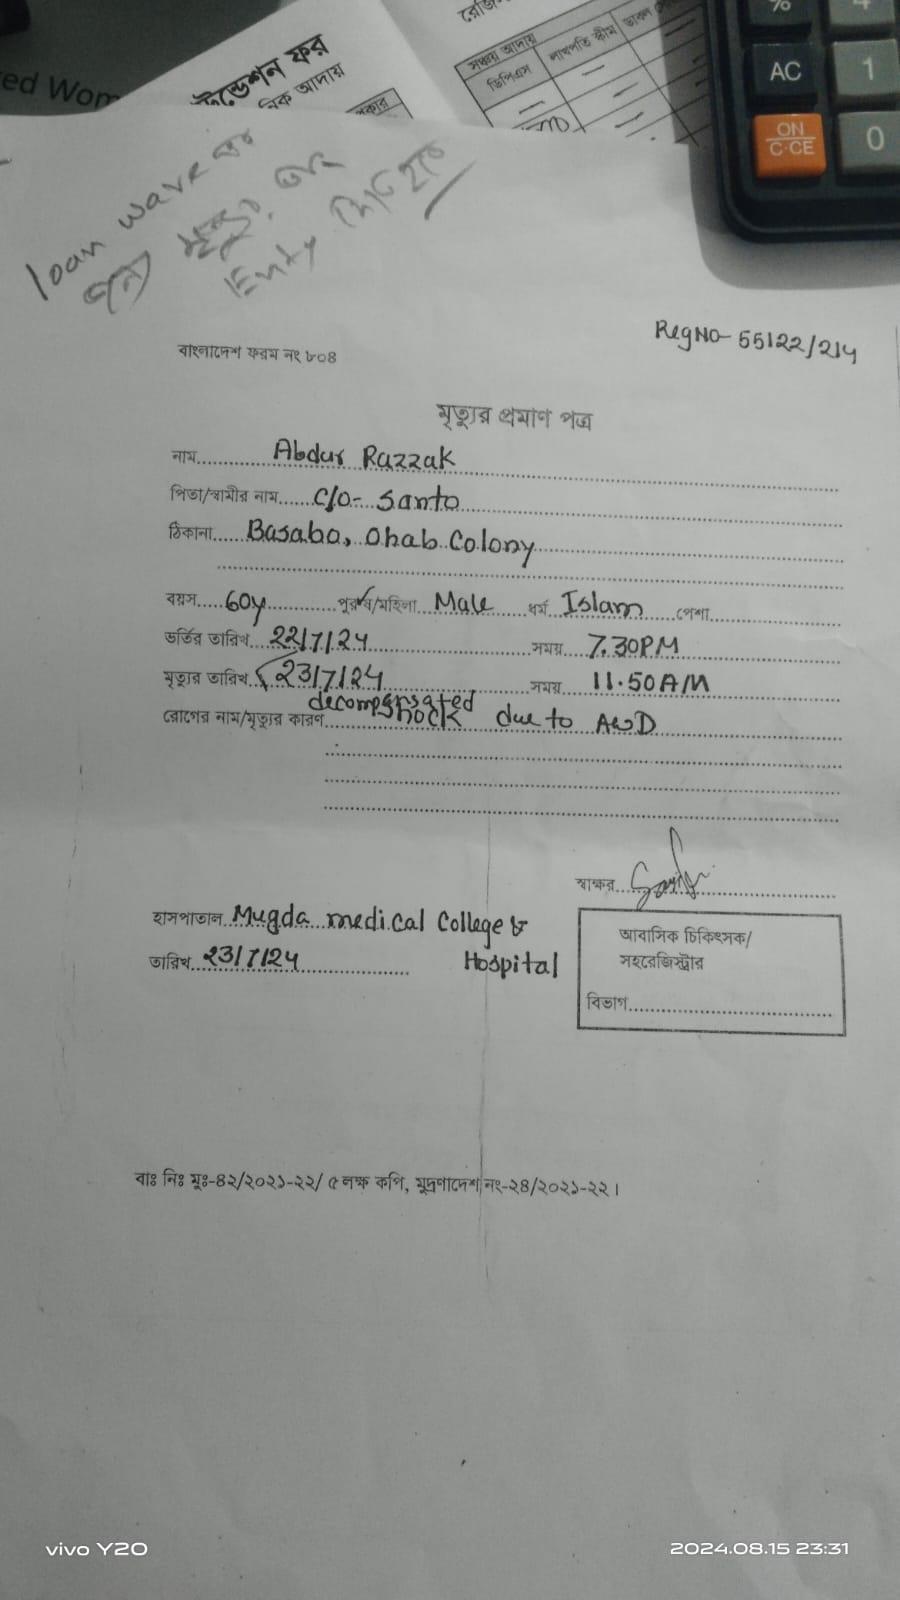 ed Wom
ন্ডেশন ফর
নিক আদায়
সঞ্চয় আদায়
ডিপিএস
লাখপতি স্কীম
ডাবল
%
4
AC
1
ON
C·CE
0
loan wave
Enty
বাংলাদেশ ফরম নং ৮০৪
RegNo- 55122/214
মৃত্যুর প্রমাণ পত্র
নাম Abdur Razzak
পিতা/স্বামীর নাম C/O- Santo
ঠিকানা Basabo, Ohab Colony
বয়স 60y পুরুষ/মহিলা Male ধর্ম Islam পেশা
ভর্তির তারিখ 22/7/24 সময় 7.30PM
মৃত্যুর তারিখ 23/7/24 সময় 11.50AM
রোগের নাম/মৃত্যুর কারণ decompensated shock due to AWD
স্বাক্ষর
হাসপাতাল Mugda medical College &
Hospital
তারিখ 23/7/24
আবাসিক চিকিৎসক/
সহরেজিস্ট্রার
বিভাগ
বাঃ নিঃ মুঃ-৪২/২০২১-২২/ ৫ লক্ষ কপি, মুদ্রণাদেশ নং-২৪/২০২১-২২।
vivo Y20
2024.08.15 23:31